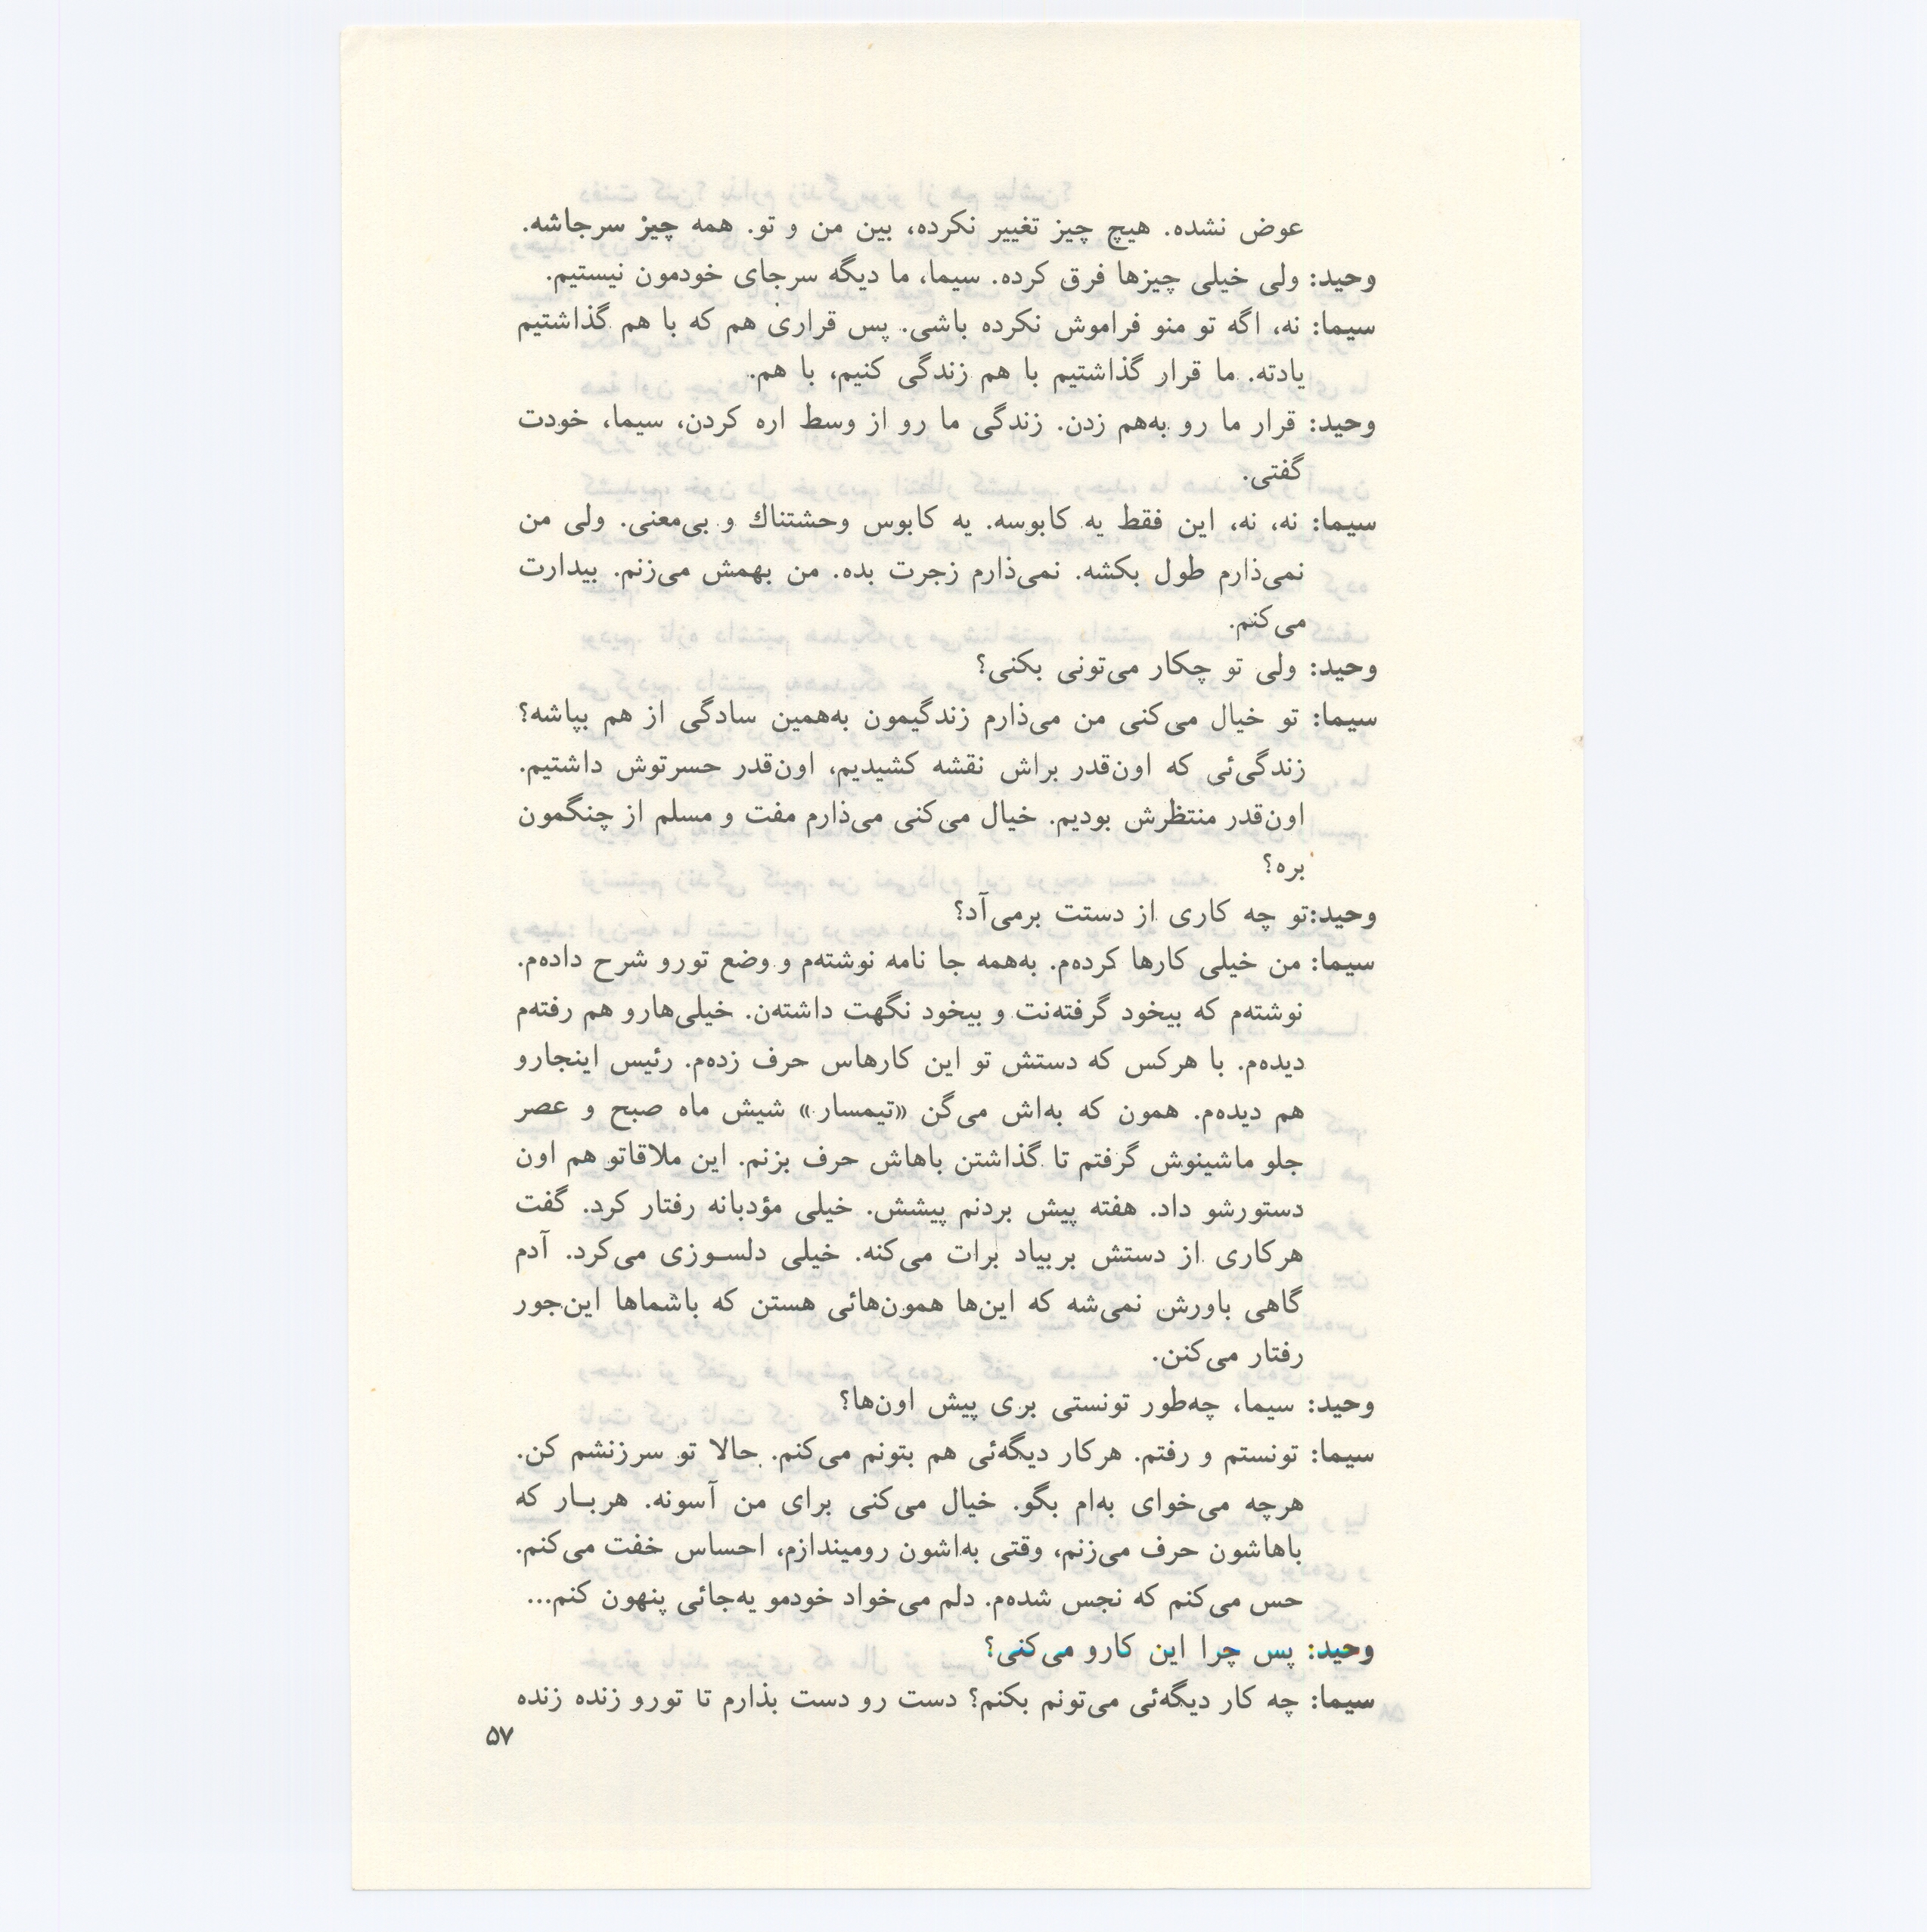 عوض نشده. هیچ چیز تغییر نکرده، بین من و تو. همه چیز سرجاشه.
وحید: ولی خیلی چیزها فرق کرده. سیما، ما دیگه سرجای خودمون نیستیم.
سیما: نه، اگه تو منو فراموش نکرده باشی. پس قراری هم که با هم گذاشتیم
یادته. ما قرار گذاشتیم با هم زندگی کنیم، با هم.
وحید: قرار ما رو به‌هم زدن. زندگی ما رو از وسط اره کردن، سیما، خودت
گفتی.
سیما: نه، نه، این فقط یه کابوسه. یه کابوس وحشتناك و بی‌معنی. ولی من
نمی‌ذارم طول بکشه. نمی‌ذارم زجرت بده. من بهمش می‌زنم. بیدارت
می‌کنم.
وحید: ولی تو چکار می‌تونی بکنی؟
سیما: تو خیال می‌کنی من می‌ذارم زندگیمون به‌همین سادگی از هم بپاشه؟
زندگی‌ئی که اون‌قدر براش نقشه کشیدیم، اون‌قدر حسرتوش داشتیم.
اون‌قدر منتظرش بودیم. خیال می‌کنی می‌ذارم مفت و مسلم از چنگمون
بره؟
وحید:تو چه کاری از دستت برمی‌آد؟
سیما: من خیلی کارها کرده‌م. به‌همه جا نامه نوشته‌م و وضع تورو شرح داده‌م.
نوشته‌م که بیخود گرفته‌نت و بیخود نگهت داشته‌ن. خیلی‌هارو هم رفته‌م
دیده‌م. با هرکس که دستش تو این کارهاس حرف زده‌م. رئیس اینجارو
هم دیده‌م. همون که به‌اش می‌گن «تیمسار» شیش ماه صبح و عصر
جلو ماشینوش گرفتم تا گذاشتن باهاش حرف بزنم. این ملاقاتو هم اون
دستورشو داد. هفته پیش بردنم پیشش. خیلی مؤدبانه رفتار کرد. گفت
هرکاری از دستش بربیاد برات می‌کنه. خیلی دلسـوزی می‌کرد. آدم
گاهی باورش نمی‌شه که این‌ها همون‌هائی هستن که باشماها این‌جور
رفتار می‌کنن.
وحید: سیما، چه‌طور تونستی بری پیش اون‌ها؟
سیما: تونستم و رفتم. هرکار دیگه‌ئی هم بتونم می‌کنم. حالا تو سرزنشم کن.
هرچه می‌خوای به‌ام بگو. خیال می‌کنی برای من آسونه. هربـار که
باهاشون حرف می‌زنم، وقتی به‌اشون رومیندازم، احساس خفت می‌کنم.
حس می‌کنم که نجس شده‌م. دلم می‌خواد خودمو یه‌جائی پنهون کنم...
وحید: پس چرا این کارو می‌کنی؟
سیما: چه کار دیگه‌ئی می‌تونم بکنم؟ دست رو دست بذارم تا تورو زنده زنده
۵۷